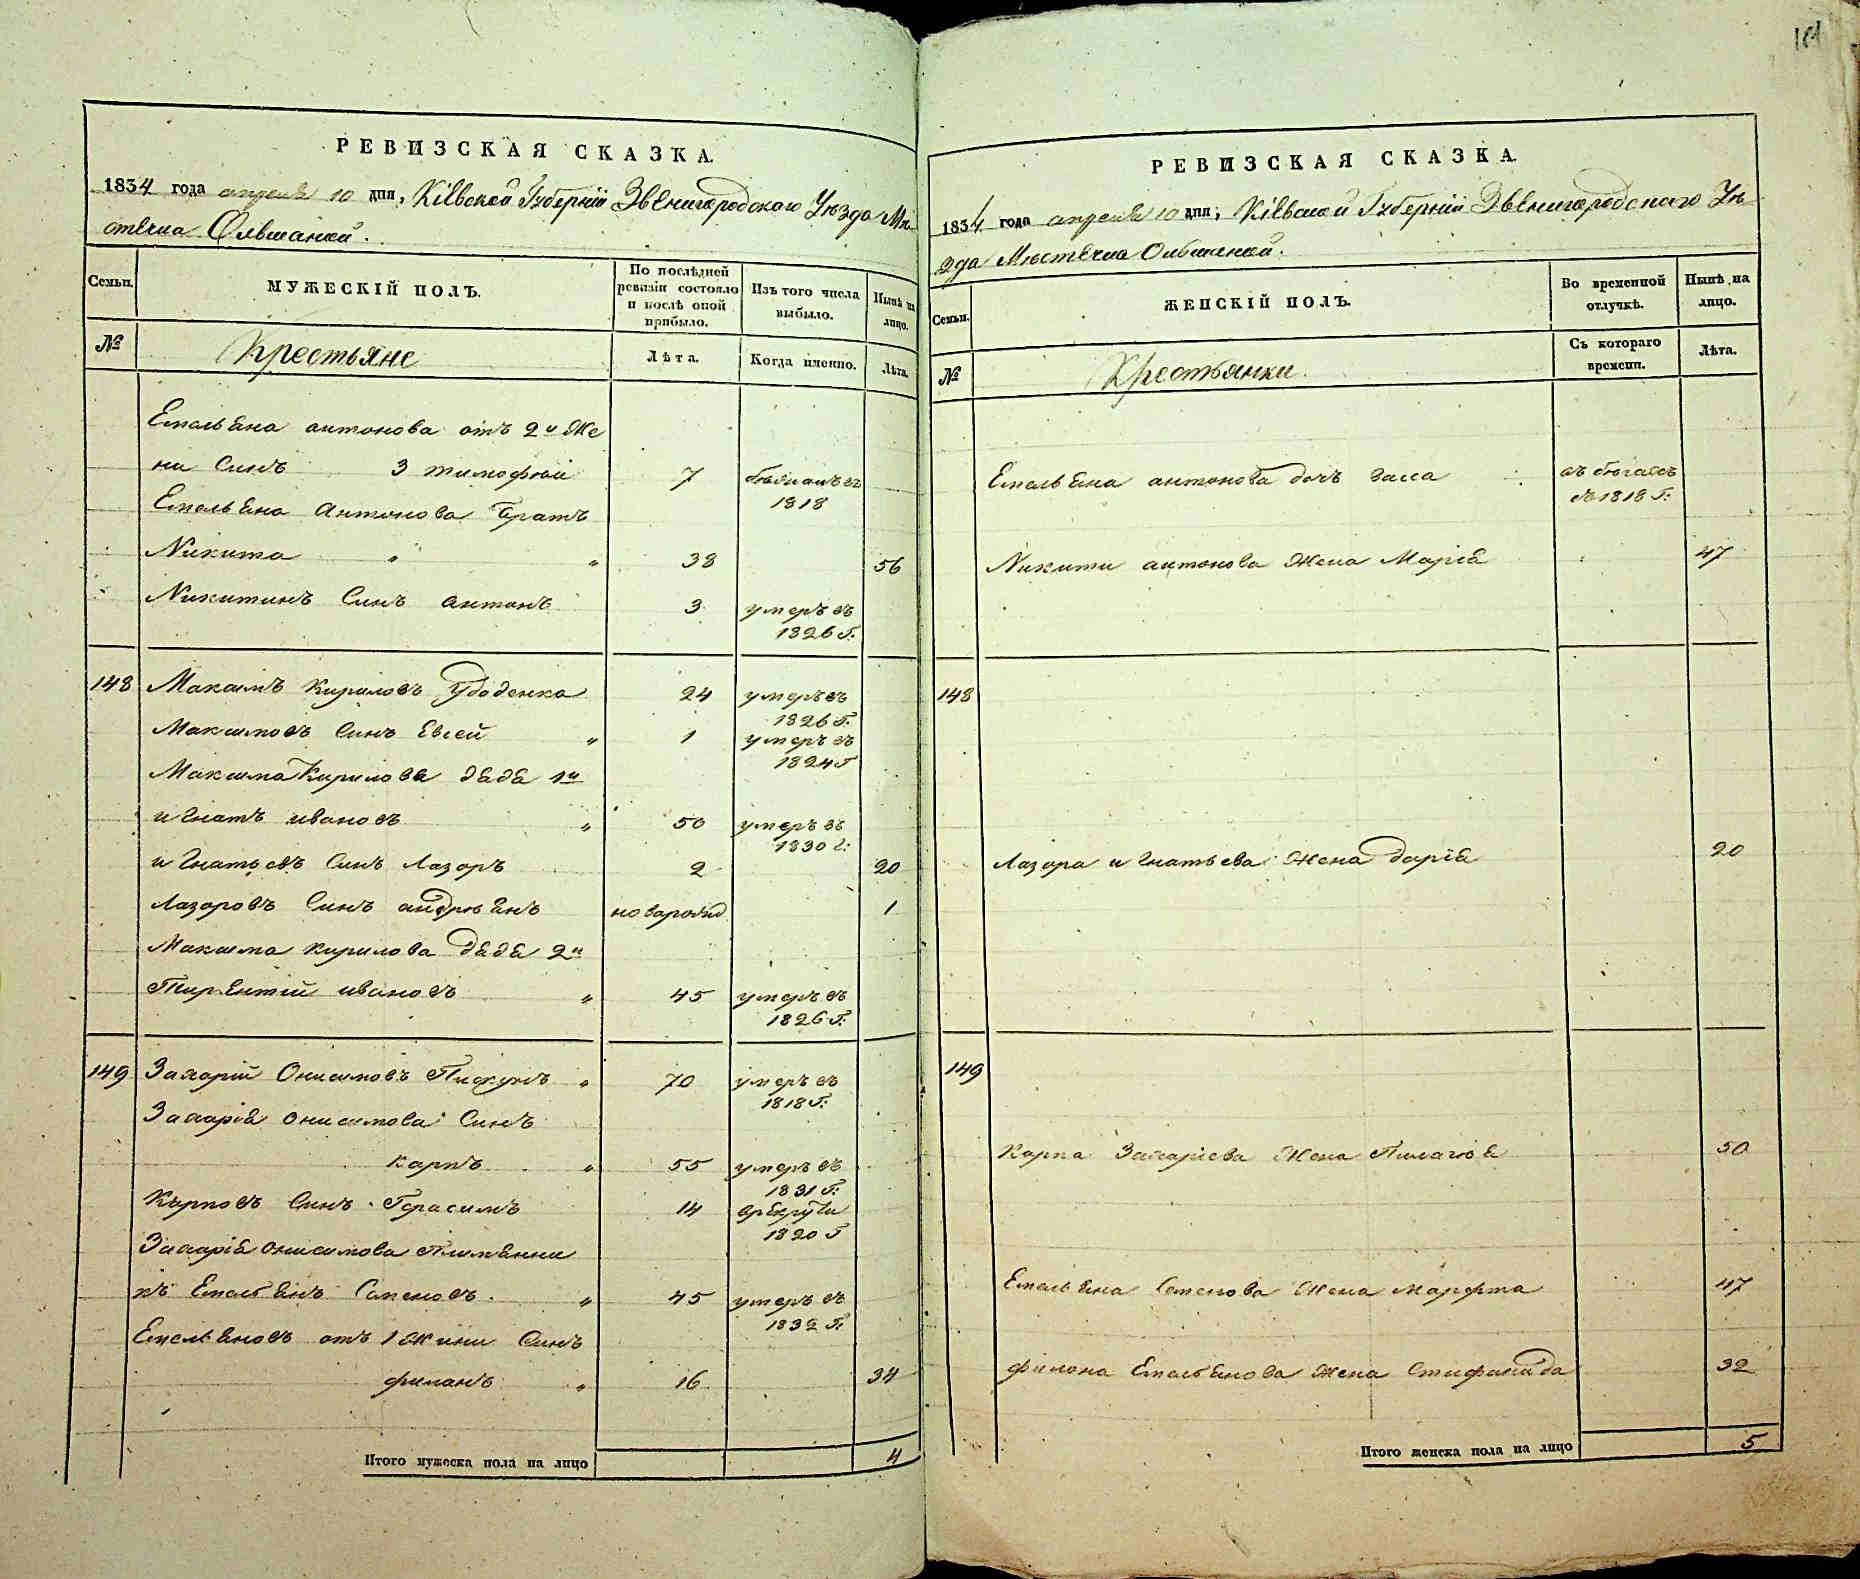 РЕВИЗСКАЯ СКАЗКА.
1834 года апреля 10 дня, Кіевской Губерніи Звенигородского Уезда Мѣ
стечка Олвшаней.
Семьи.
МУЖЕСКІЙ ПОЛЪ.
По послѣдней ревизіи состояло и послѣ оной прибыло.
Изъ того числа выбыло.
Нынѣ на лицо.
№
Крестьяне
Лѣта.
Когда именно.
Лѣта.
Емельяна антонова отъ 2й Же
ни Синъ 3 тимофѣй 7
1818
Емельяна Антонова Братъ
Никита " " 38 56
Никитинъ Синъ Антонъ 3 умеръ въ
1826 Г:
148 Максимъ Кириловъ Удоденко 24 умеръ въ
1826 Г.
Максимовъ Синъ Евсей " 1 умеръ въ
1824 Г
Максима Кирилова дядя 1й
игнатъ ивановъ " 50 умеръ въ
1830 г:
игнатьевъ Синъ Лазоръ 2 20
Лазоровъ Синъ андреянъ новарожд 1
Максима Кирилова дядя 2й
Тирентій ивановъ " 45 умеръ въ
1826 Г:
149 Захарій Онисимовъ Пискунъ " 70 умеръ въ
1818 Г:
Захарія Онисимова Синъ
карпъ " 55 умеръ въ
1831 Г:
Карповъ Синъ Герасимъ 14 врекрути
1820 Г
Захарія Онисимова Племянни
къ Емельянъ Семеновъ " 45 умеръ въ
1832 Г:
Емельяновъ отъ 1 жини Синъ
филонъ " 16 34
Итого мужеска пола на лицо 4
РЕВИЗСКАЯ СКАЗКА.
1834 года апреля 10 дня, Кіевской Губерніи Звенигородского Уѣ
зда Мѣстечка Олвшаней.
Семьи.
ЖЕНСКІЙ ПОЛЪ.
Во временной отлучкѣ.
Нынѣ на лицо.
№
Крестьянки
Съ котораго времени.
Лѣта.
Емельяна антонова дочъ Васса въ бѣгахъ
съ 1818 Г:
Никити антонова Жена Марія 47
148
Лазора игнатьева Жена Дарія 20
149
Карпа Захаріева Жена Пилагія 50
Емельяна Семенова Жена Марфта 47
филона Емельянова Жена Стифанида 32
Итого женска пола на лицо 5